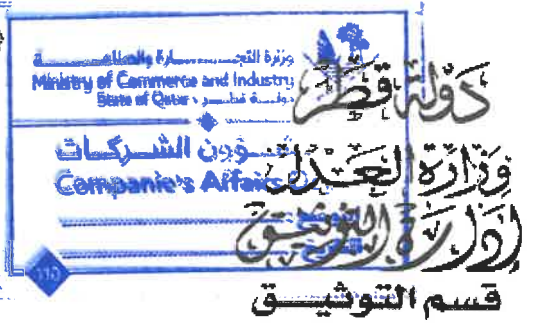 وزارة التجـــارة والصناعـــة
Ministry of Commerce and Industry
State of Qatar دولـــة قطـــر
شـــؤون الشـــركـــات
Companie's Affairs
دولة قطر
وزارة العدل
إدارة التوثيق
قسم التوثيـــق